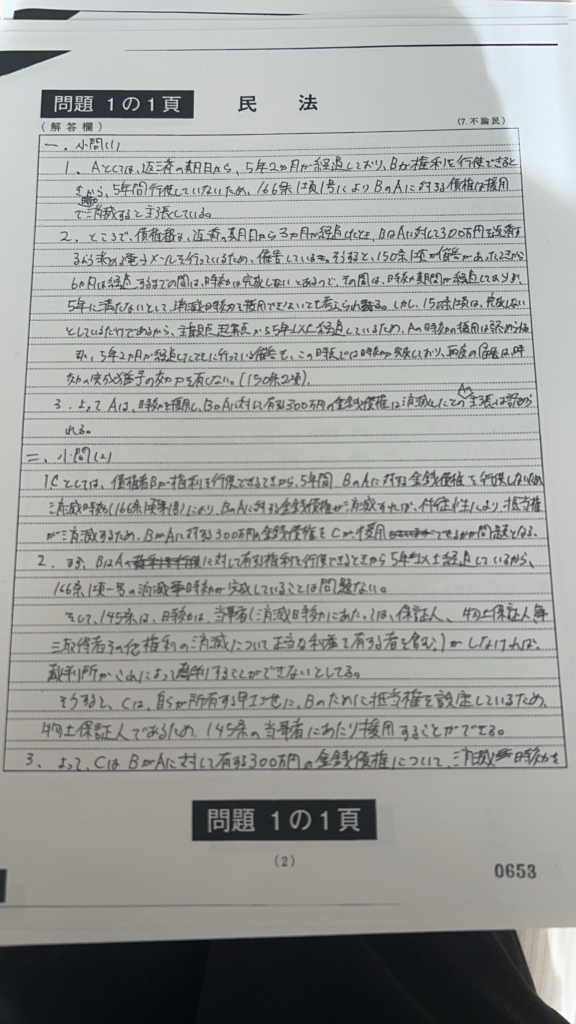 問題 1の1頁
民 法
(解答欄)
(7.不論民)
一. 小問(1)
1. Aとしては、返済の期日から、5年2カ月が経過しており、Bが権利を行使できると
きから、5年間行使していないため、166条1項1号によりBのAに対する債権は援用
で消滅すると主張している。
2. ところで、債権者は、返済の期日から3カ月が経過したとき、BはAに対して300万円を返済す
るよう求める電子メールを行っているため、催告している。そうすると、150条1項が催告があったときから
6カ月を経過するまでの間は、時効は完成しないとあるので、その間は、時効期間が経過しておらず、
5年に満たないとして、消滅時効を援用できないとも考えられる。しかし、150条1項は、完成しない
としているだけであるから、主観的起算点から5年以上経過しているため、Aの時効の援用は認められ
5年2カ月が経過したときに行っている催告も、この時点では時効が完成しており、再度の催告は、時
効の完成猶予の効力を有しない。(150条2項)。
3. よってAは、時効を援用し、BのAに対して有する300万円の金銭債権は消滅したとのAの主張は認めら
れる。
二. 小問(2)
1. Cとしては、債権者Bが権利を行使できるときから、5年間、BのAに対する金銭債権を行使しないため
消滅時効(166条1項1号)により、BのAに対する金銭債権が消滅すれば、付従性により、抵当権
が消滅するため、BがAに対する300万円の金銭債権をCが援用できるかが問題となる。
2. まず、BはAに対して有する権利を行使できるときから5年以上経過しているから、
166条1項一号の消滅時効が完成していることは問題ない。
そして、145条は、時効は、当事者(消滅時効にあたっては、保証人、物上保証人、第
三取得者その他権利の消滅について正当な利益を有する者を含む。)がしなければ、
裁判所がこれによって裁判することができないとしてる。
そうすると、Cは、自らが所有する甲土地に、Bのために抵当権を設定しているため、
物上保証人であるため、145条の当事者にあたり援用することができる。
3. よって、CはBがAに対して有する300万円の金銭債権について、消滅時効を
問題 1の1頁
(2)
0653